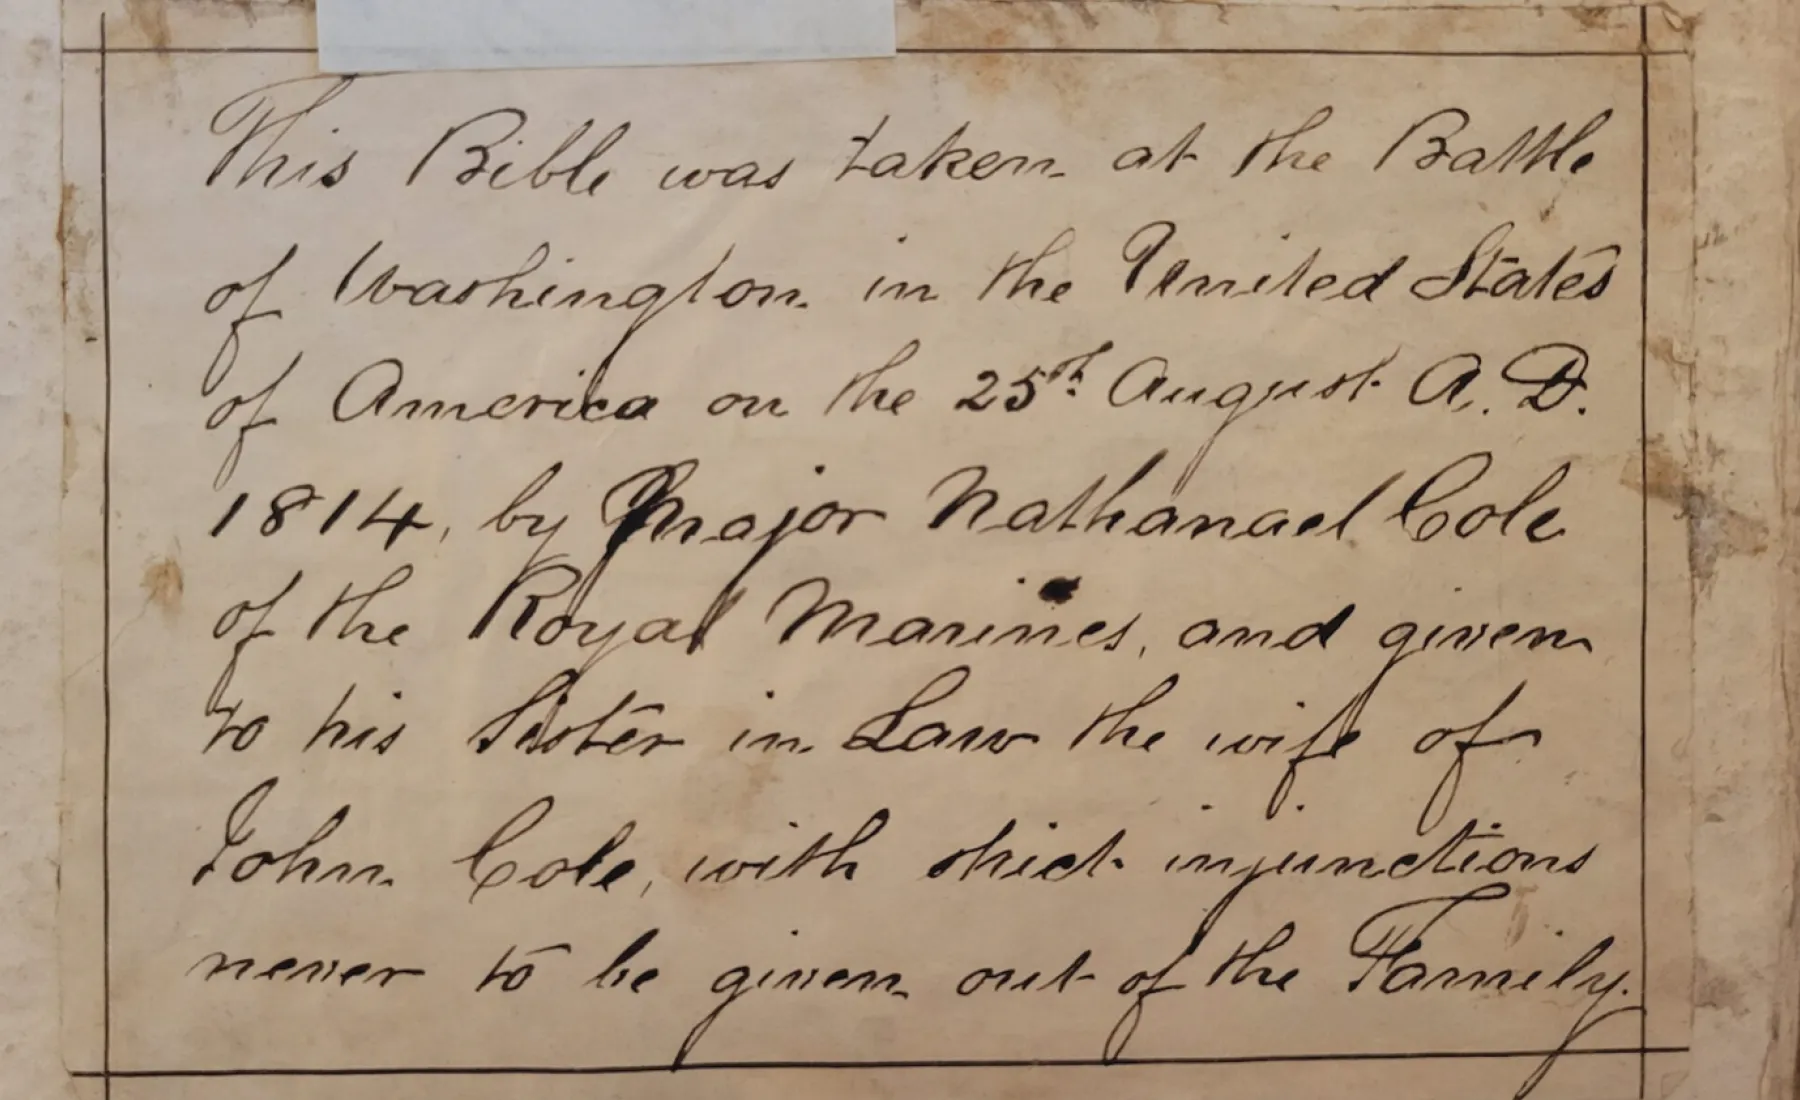 This Bible was taken at the Battle
of Washington in the United States
of America on the 25th August A.D.
1814, by Major Nathanael Cole
of the Royal Marines, and given
to his Sister in Law the wife of
John Cole, with strict injunctions
never to be given out of the Family.